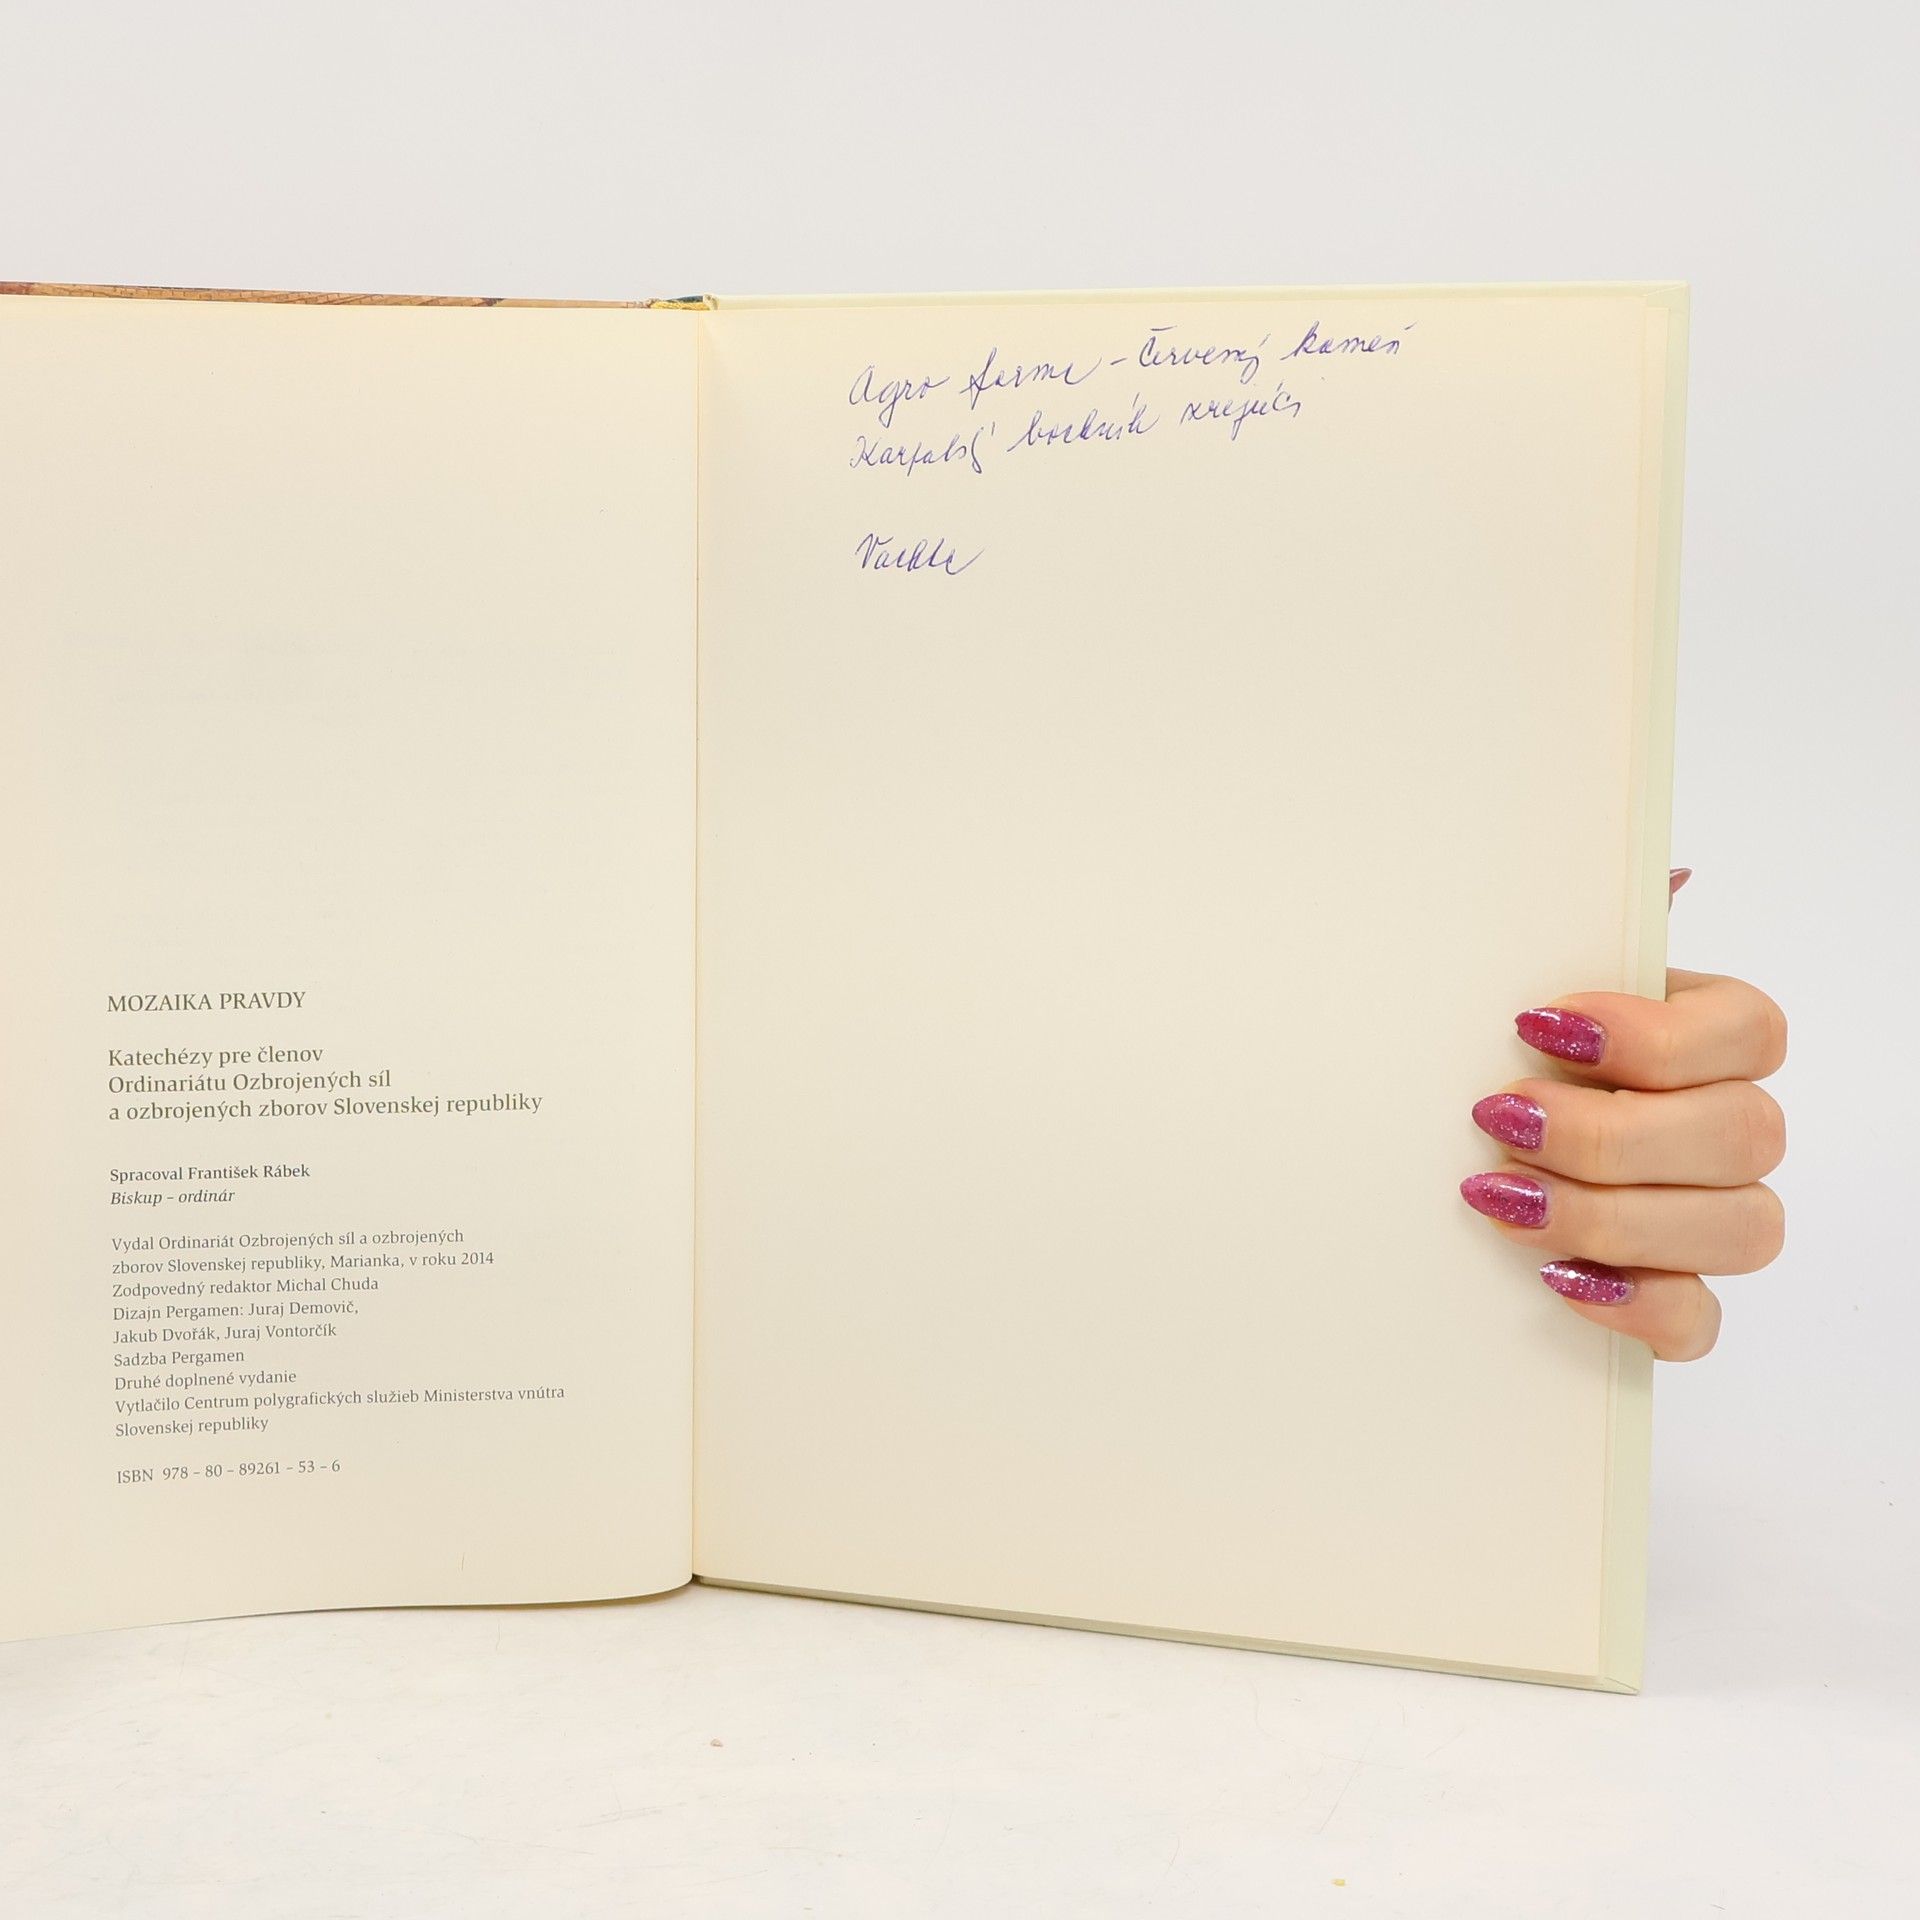 MOZAIKA PRAVDY
Katechézy pre členov
Ordinariátu Ozbrojených síl
a ozbrojených zborov Slovenskej republiky
Spracoval František Rábek
Biskup – ordinár
Vydal Ordinariát Ozbrojených síl a ozbrojených
zborov Slovenskej republiky, Marianka, v roku 2014
Zodpovedný redaktor Michal Chuda
Dizajn Pergamen: Juraj Demovič,
Jakub Dvořák, Juraj Vontorčík
Sadzba Pergamen
Druhé doplnené vydanie
Vytlačilo Centrum polygrafických služieb Ministerstva vnútra
Slovenskej republiky
ISBN 978 – 80 – 89261 – 53 – 6
Agro farma – Červený kameň
Karpatský zrejúci